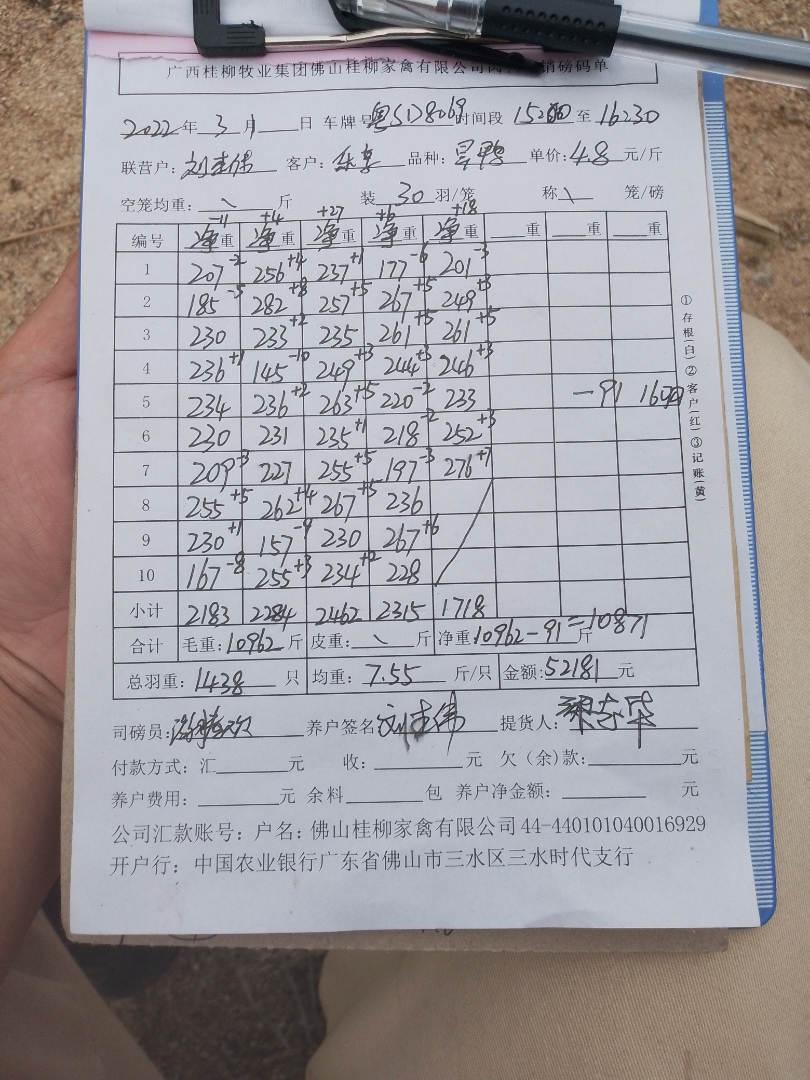 广西桂柳牧业集团佛山桂柳家禽有限公司 销磅码单
2022年 3月 1日 车牌号 粤SD8069 时间段 至 16:30
联营户: 刘 伟 客户: 乐享 品种: 鸭 单价: 4.8 元/斤
空笼均重: \ 斤 装 30 羽/笼 称 \ 笼/磅
-11 +4 +27 +6 +18
编号 净重 净重 净重 净重 净重 重 重 重
1 207-2 256+4 237+1 177-6 201-3
2 185-5 282+8 257+5 267+5 249+3
3 230 233+2 235 261+5 261+5
4 236+1 145-10 249+3 244+3 246+3
5 234 236+2 263+5 220-2 233 -91
6 230 231 235+1 218-2 252+3
7 209-3 227 255+5 197-3 276+7
8 255+5 262+4 267+5 236
9 230+1 157-9 230 267+6
10 167-8 255+3 234+2 228
小计 2183 2284 2462 2315 1718
合计 毛重: 10962 斤 皮重: \ 斤 净重 10962-91=10871 斤
总羽重: 1438 只 均重: 7.55 斤/只 金额: 52181 元
司磅员: 养户签名 刘 伟 提货人:
付款方式: 汇 元 收: 元 欠(余)款: 元
养户费用: 元 余料 包 养户净金额: 元
公司汇款账号: 户名: 佛山桂柳家禽有限公司 44-440101040016929
开户行: 中国农业银行广东省佛山市三水区三水时代支行
①存根(白)②客户(红)③记账(黄)